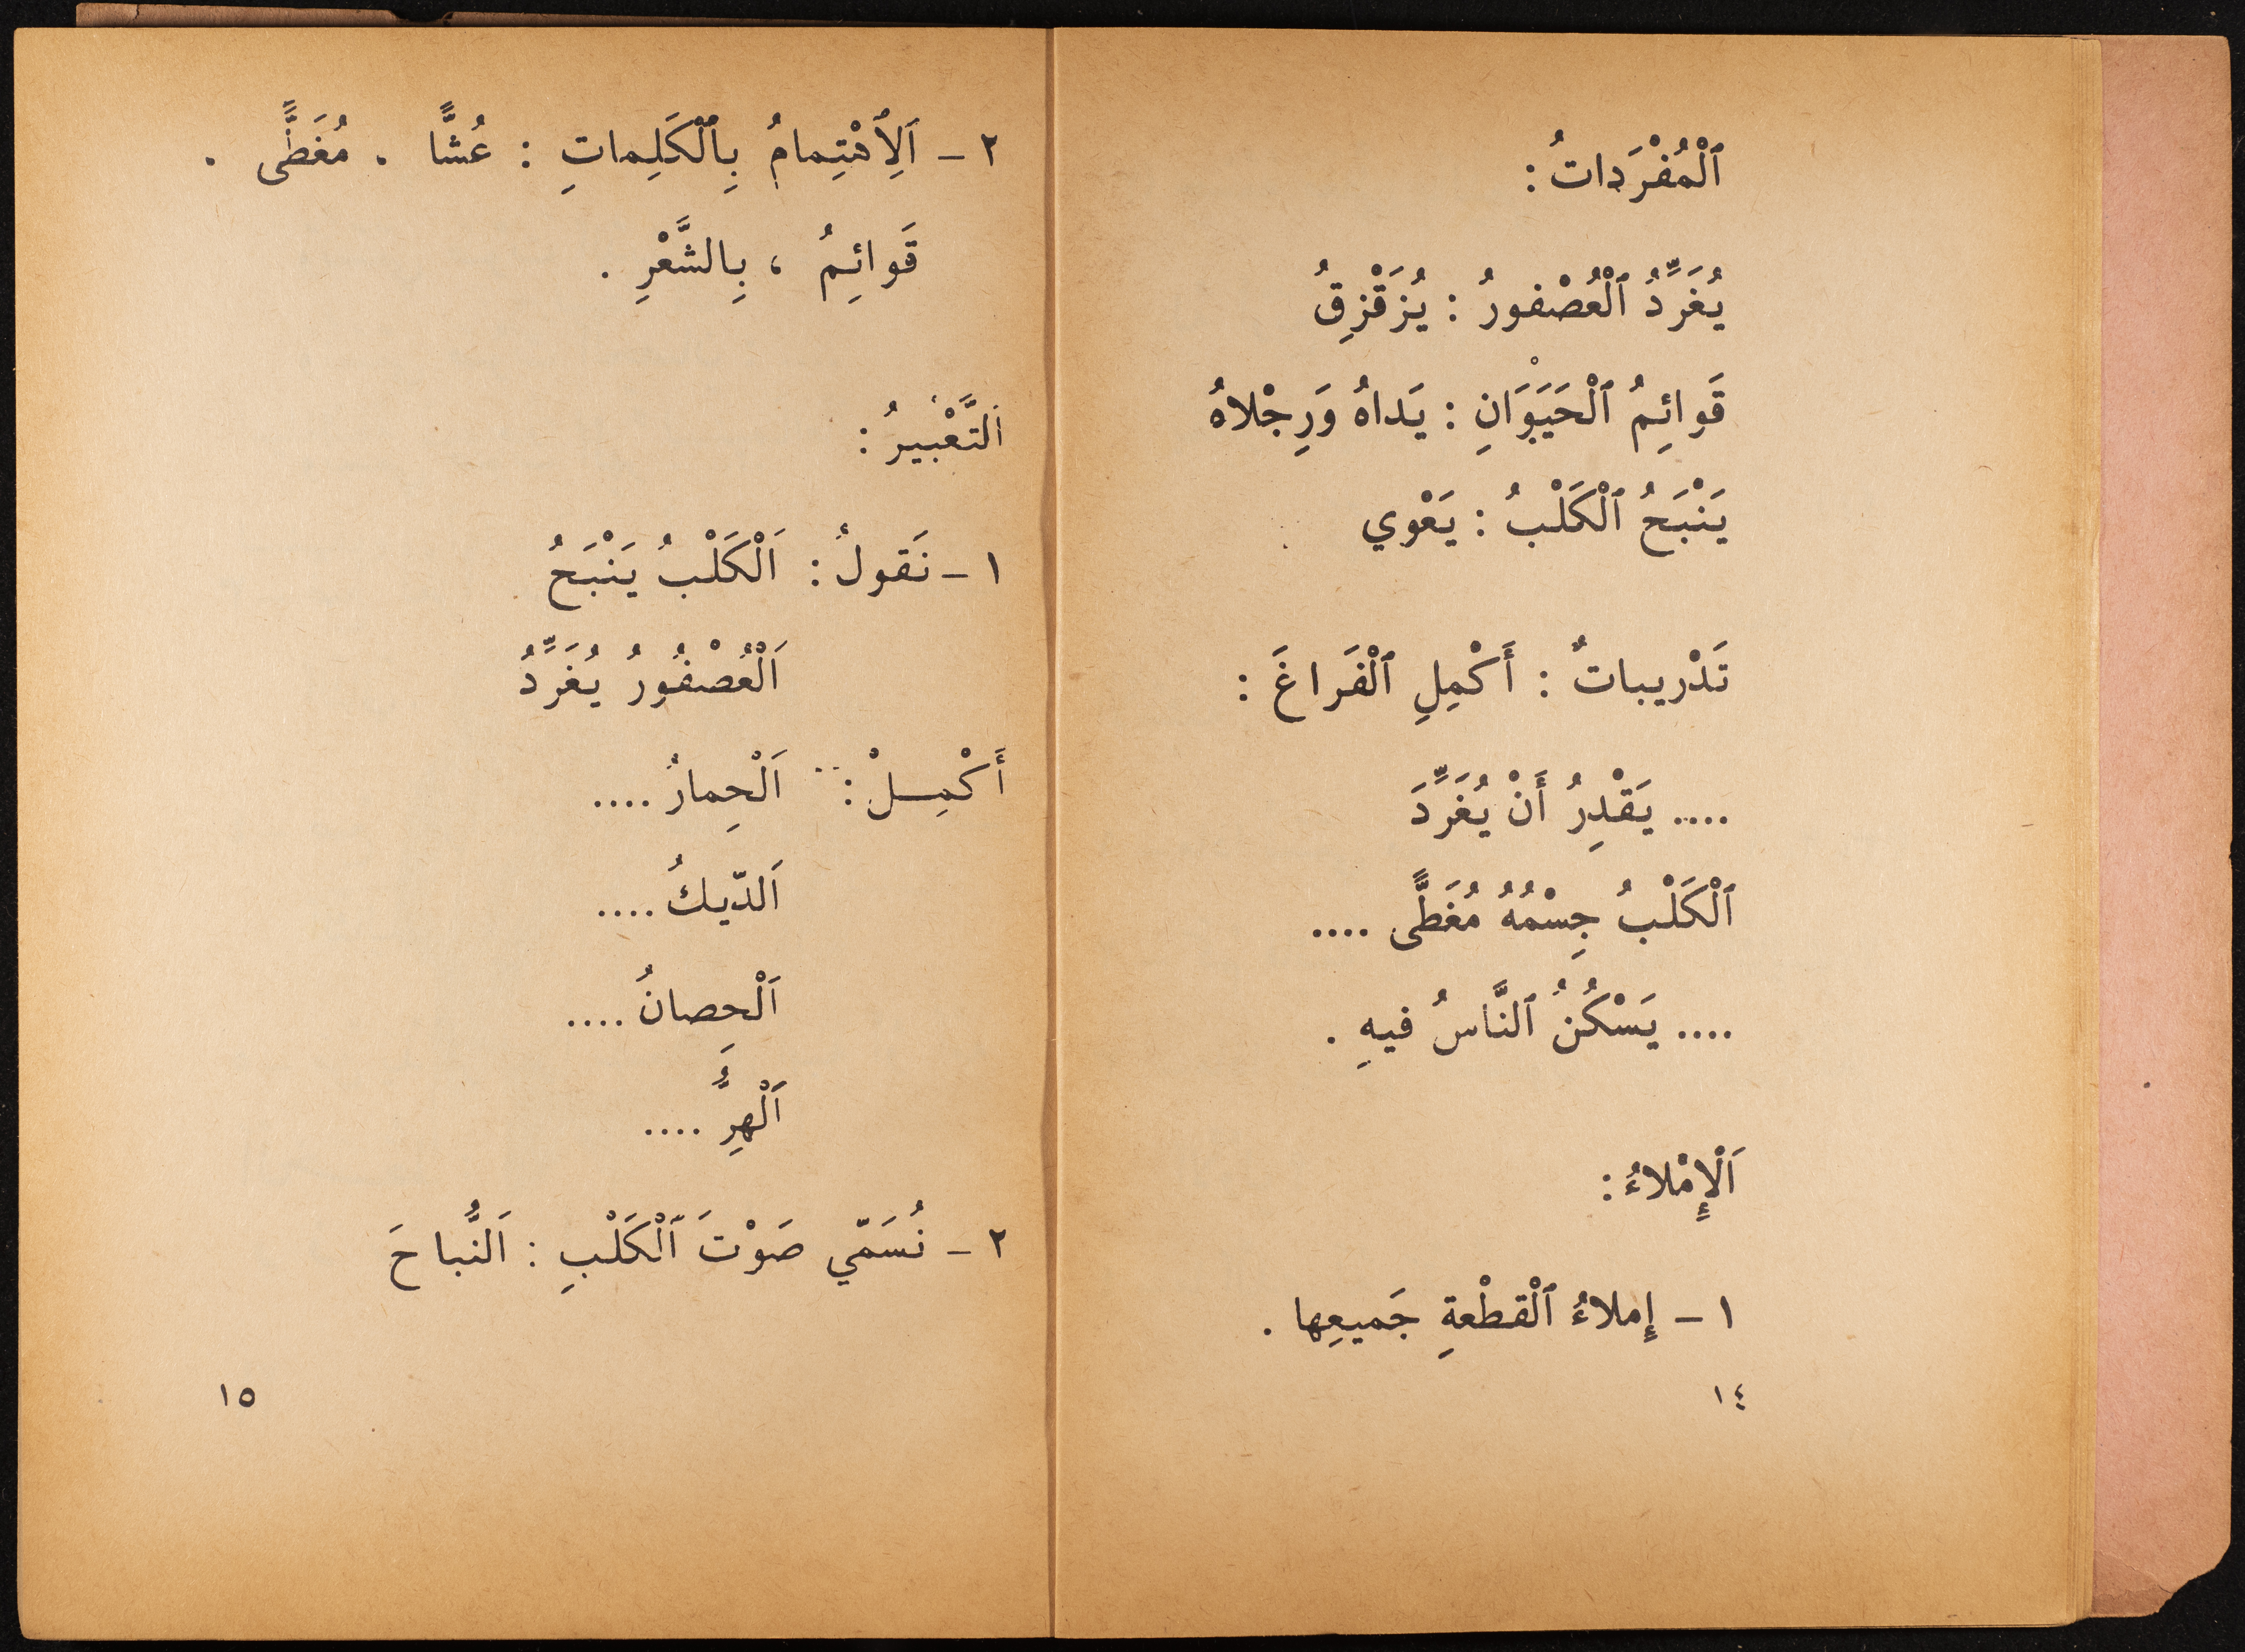 ٱلْمُفْرَداتُ :
يُغَرِّدُ ٱلْعُصْفورُ : يُزَقْزِقُ
قَوائِمُ ٱلْحَيَوَانِ : يَداهُ وَرِجْلاهُ
يَنْبَحُ ٱلْكَلْبُ : يَعْوي
تَدْريباتٌ : أَكْمِلِ ٱلْفَراغَ :
.... يَقْدِرُ أَنْ يُغَرِّدَ
ٱلْكَلْبُ جِسْمُهُ مُغَطًّى ....
.... يَسْكُنُ ٱلنَّاسُ فيهِ .
اَلْإِمْلاءُ :
١ - إِملاءُ ٱلْقطْعةِ جَميعِها .
١٤
٢ - اَلِٱهْتِمامُ بِٱلْكَلِماتِ : عُشًّا . مُغَطًّى .
قَوائِمُ ، بِالشَّعْرِ .
اَلتَّعْبيرُ :
١ - نَقولُ : اَلْكَلْبُ يَنْبَحُ
اَلْعُصْفُورُ يُغَرِّدُ
أَكْمِــلْ : اَلْحِمارُ ....
اَلدّيكُ ....
اَلْحِصانُ ....
اَلْهِرُّ ....
٢ - نُسَمّي صَوْتَ ٱلْكَلْبِ : اَلنُّباحَ
١٥